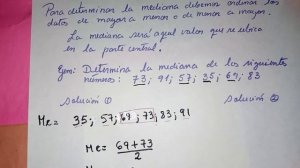 Para determinar la mediana debemos ordenar los
datos de mayor a menor o de menor a mayor.
La mediana será aquel valor que se ubica
en la parte central.
Ejm: Determina la mediana de los siguientes
números: 73; 91; 57; 35; 69; 83
Solución ① Solución ②
Me = 35; 57; 69; 73; 83; 91
Me = 69+73
2